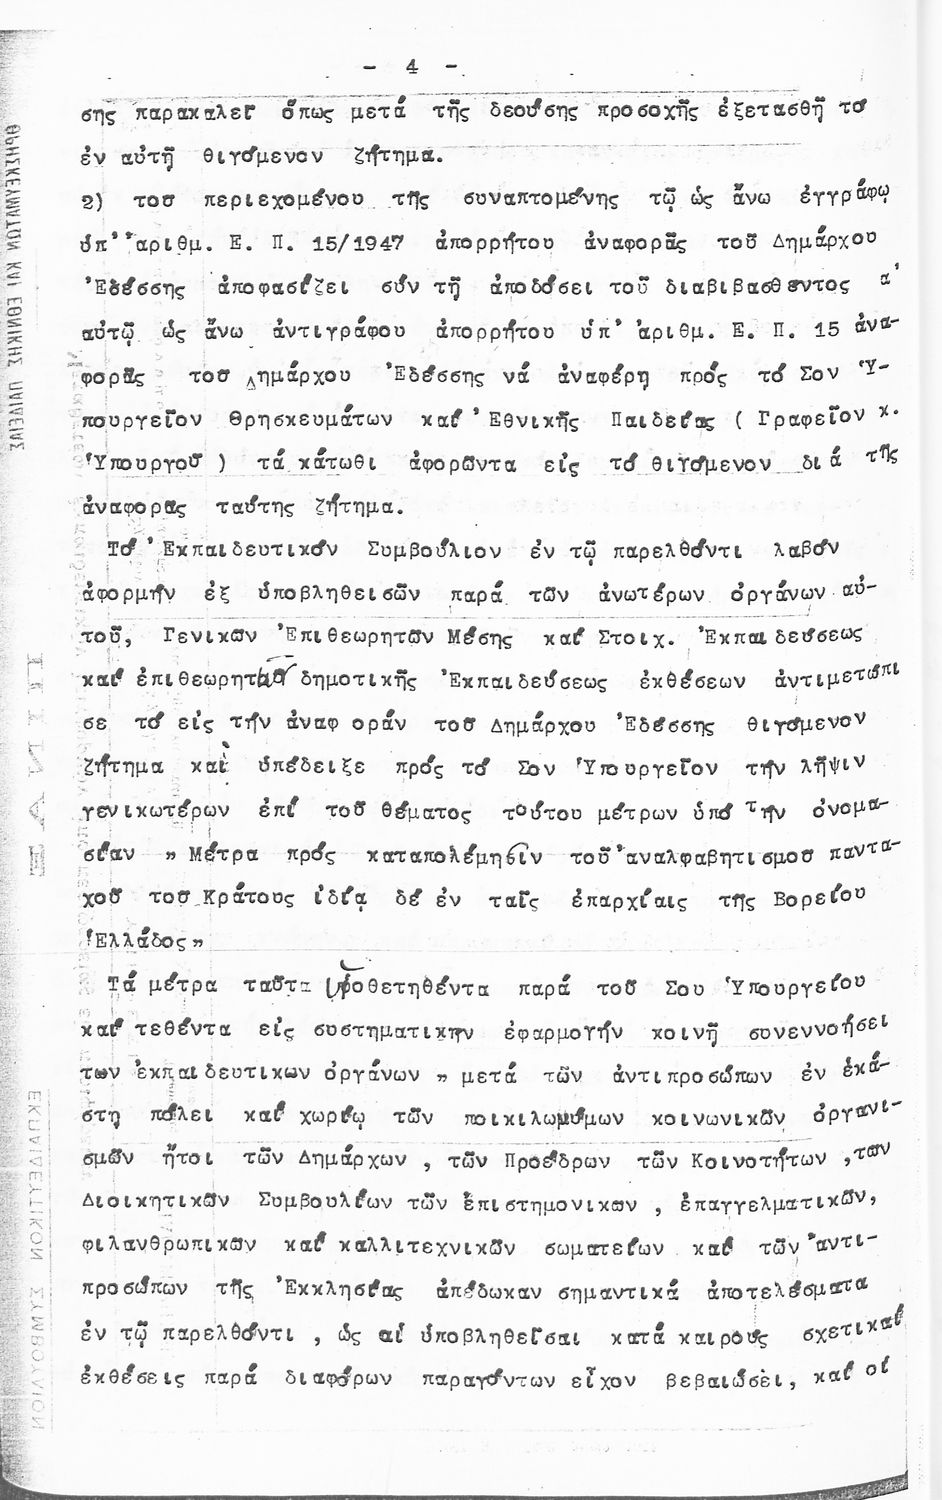 - 4 -
σης παρακαλεῖ ὅπως μετά τῆς δεούσης προσοχῆς ἐξετασθῇ τό
ἐν αὐτῇ θιγόμενον ζήτημα.
2) τοῦ περιεχομένου τῆς συναπτομένης τῷ ὡς ἄνω ἐγγράφῳ
ὑπ' ἀριθμ. Ε. Π. 15/1947 ἀπορρήτου ἀναφορᾶς τοῦ Δημάρχου
Ἐδέσσης ἀποφασίζει σύν τῇ ἀποδόσει τοῦ διαβιβασθέντος α'
αὐτῷ ὡς ἄνω ἀντιγράφου ἀπορρήτου ὑπ' ἀριθμ. Ε. Π. 15 ἀνα-
φορᾶς τοῦ Δημάρχου Ἐδέσσης νά ἀναφέρῃ πρός τό Σον Ὑ-
πουργεῖον Θρησκευμάτων καί Ἐθνικῆς Παιδείας ( Γραφεῖον κ.
Ὑπουργοῦ ) τά κάτωθι ἀφορῶντα εἰς τό θιγόμενον διά τῆς
ἀναφορᾶς ταύτης ζήτημα.
Τό Ἐκπαιδευτικόν Συμβούλιον ἐν τῷ παρελθόντι λαβόν
ἀφορμήν ἐξ ὑποβληθεισῶν παρά τῶν ἀνωτέρων ὀργάνων αὐ-
τοῦ, Γενικῶν Ἐπιθεωρητῶν Μέσης καί Στοιχ. Ἐκπαιδεύσεως
καί ἐπιθεωρητῶν δημοτικῆς Ἐκπαιδεύσεως ἐκθέσεων ἀντιμετώπι
σε τό εἰς τήν ἀναφοράν τοῦ Δημάρχου Ἐδέσσης θιγόμενον
ζήτημα καί ὑπέδειξε πρός τό Σον Ὑπουργεῖον τήν λῆψιν
γενικωτέρων ἐπί τοῦ θέματος τούτου μέτρων ὑπό τήν ὀνομα-
σίαν " Μέτρα πρός καταπολέμησιν τοῦ ἀναλφαβητισμοῦ παντα-
χοῦ τοῦ Κράτους ἰδίᾳ δέ ἐν ταῖς ἐπαρχίαις τῆς Βορείου
Ἑλλάδος"
Τά μέτρα ταῦτα υἱοθετηθέντα παρά τοῦ Σου Ὑπουργείου
καί τεθέντα εἰς συστηματικήν ἐφαρμογήν κοινῇ συνεννοήσει
τῶν ἐκπαιδευτικῶν ὀργάνων " μετά τῶν ἀντιπροσώπων ἐν ἑκά-
στῃ πόλει καί χωρίῳ τῶν ποικιλωνύμων κοινωνικῶν ὀργανι-
σμῶν ἤτοι τῶν Δημάρχων , τῶν Προέδρων τῶν Κοινοτήτων ,τῶν
Διοικητικῶν Συμβουλίων τῶν ἐπιστημονικῶν , ἐπαγγελματικῶν,
φιλανθρωπικῶν καί καλλιτεχνικῶν σωματείων καί τῶν ἀντι-
προσώπων τῆς Ἐκκλησίας ἀπέδωκαν σημαντικά ἀποτελέσματα
ἐν τῷ παρελθόντι , ὡς αἱ ὑποβληθεῖσαι κατά καιρούς σχετικαί
ἐκθέσεις παρά διαφόρων παραγόντων εἶχον βεβαιώσει, καί οἱ